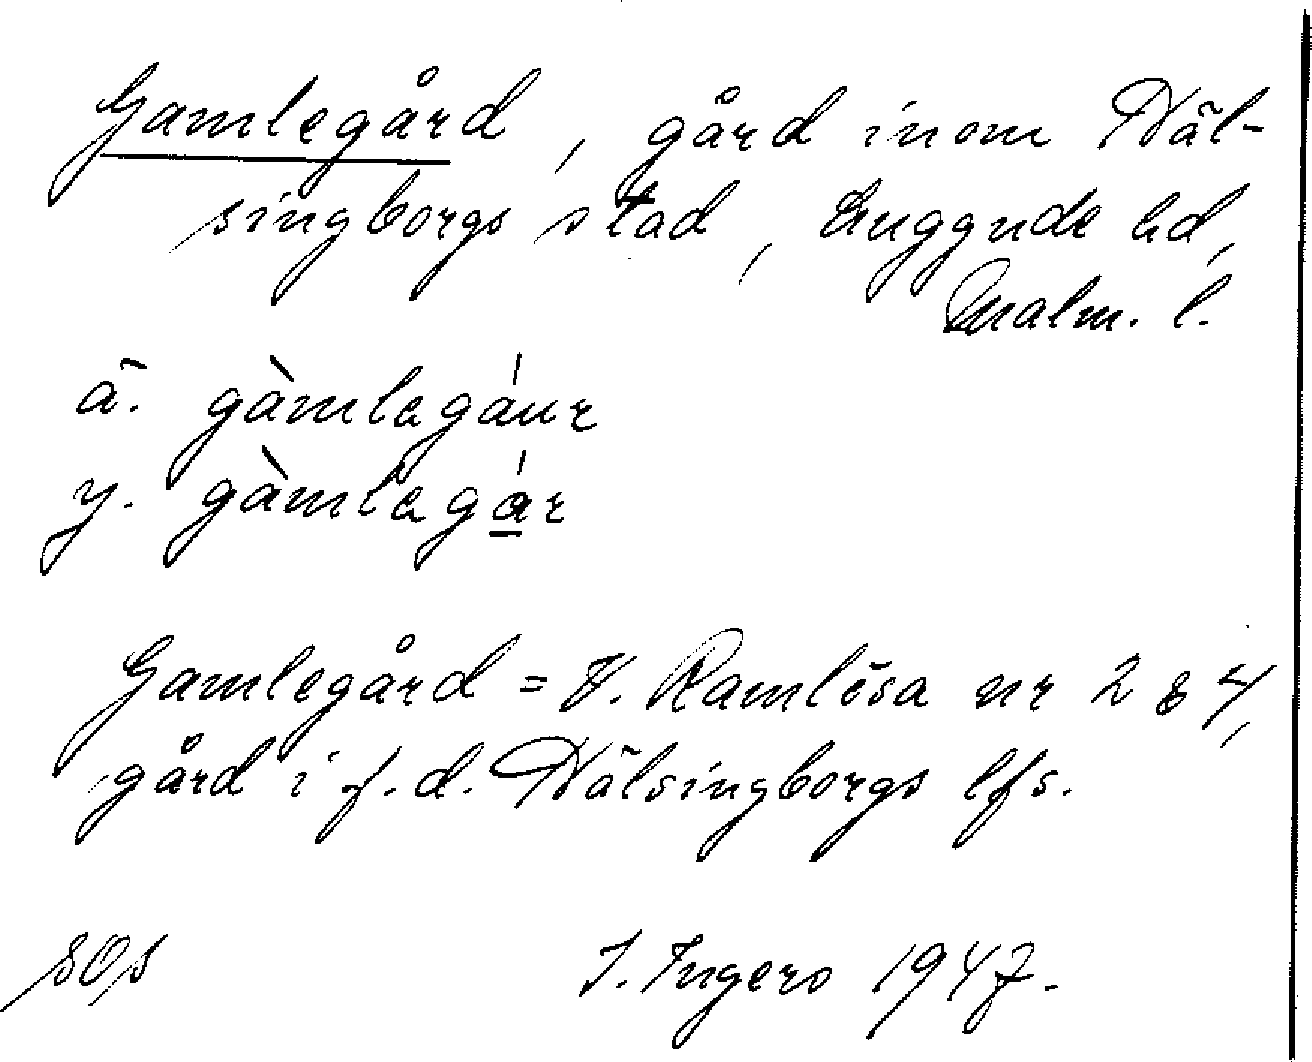 Gamlegård, gård inom Häl-
singborgs stad, Luggude hd,
Malm. l.
ä. gàmlagáur
y. gàmlagár
Gamlegård = V. Ramlösa nr 2 & 4,
gård i f.d. Hälsingborgs lfs.
SOS I. Ingers 1947.